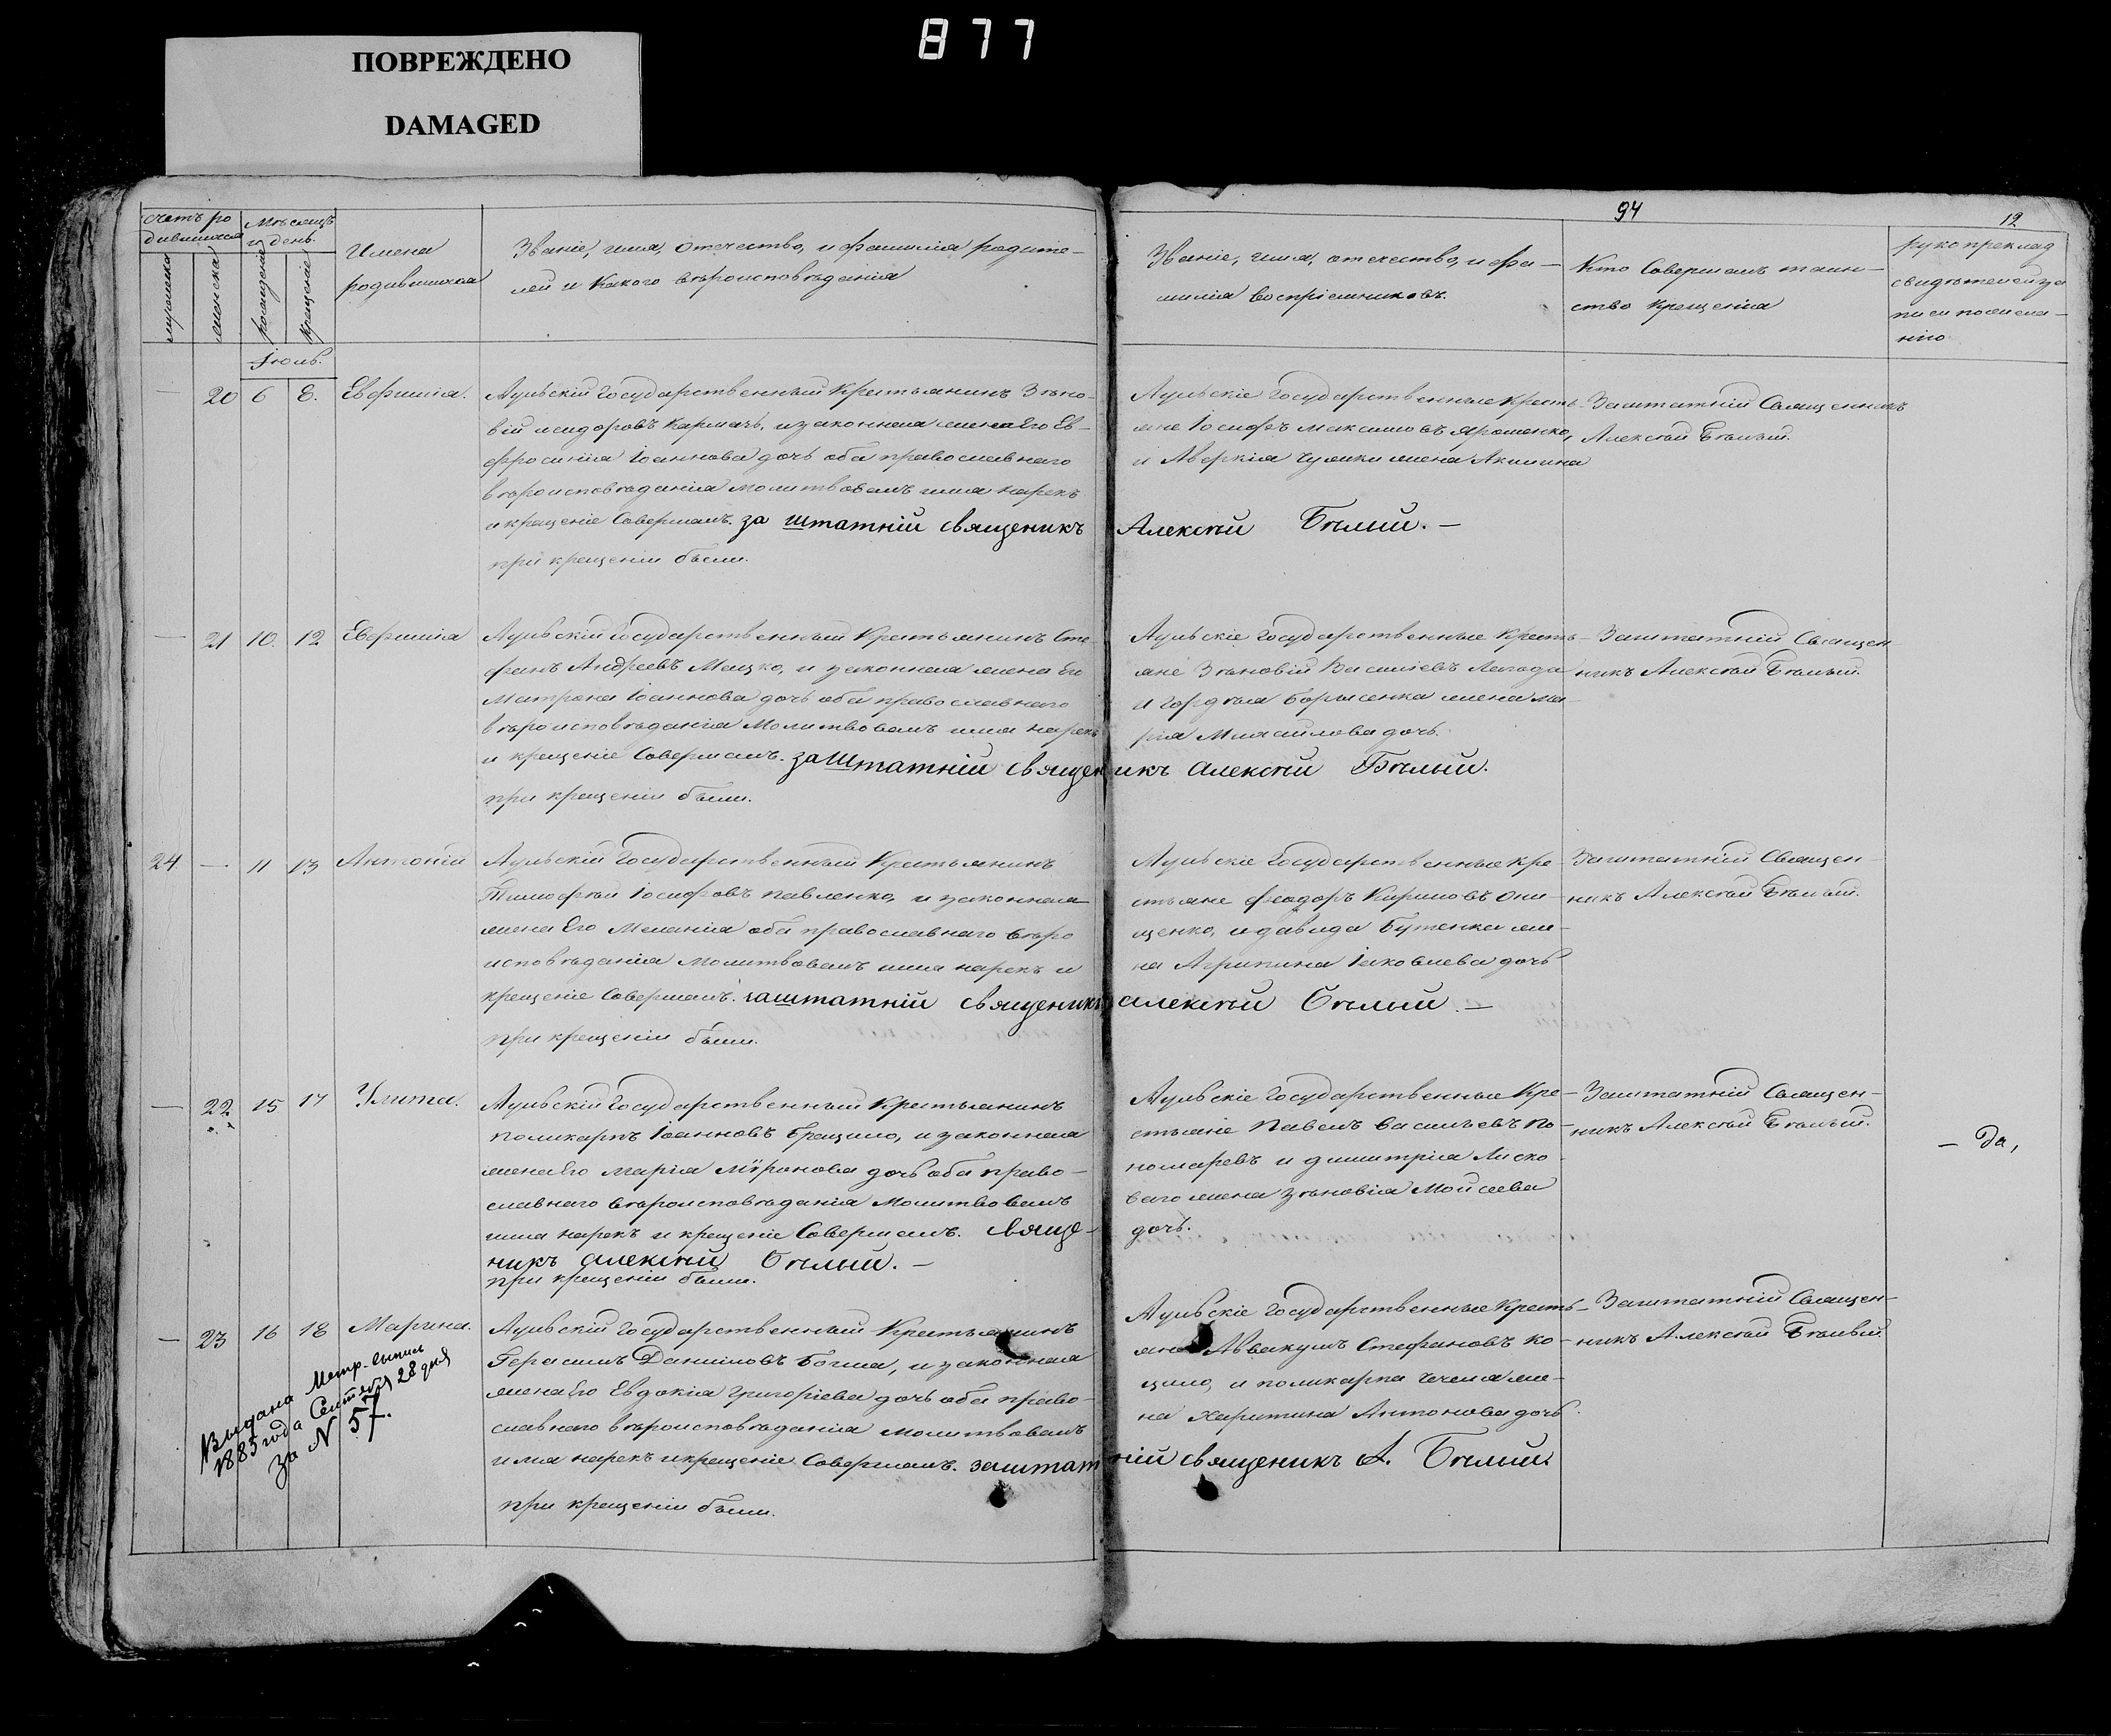 877
ПОВРЕЖДЕНО
DAMAGED
94
12
счетъ ро
дившихся
мужеска
женска
Мѣсяцъ
и день.
рожденіе
крещеніе
Имена
родившихся
Званіе, имя, отечество, и фамилія родите-
лей и какого вѣроисповѣданія
Званіе, имя, отечество, и фа-
милія воспріемниковъ.
Кто совершалъ таин-
ство крещенія
рукоприклад
свидѣтелей за
писи по жела-
нію
Іюль.
— 20 6 8. Евфимія.
Государственный Крестьянинъ Зѣно-
вій исидоровъ Кармачъ, и законная жена Его Ев-
фросинія Іоаннова дочь оба православнаго
вѣроисповѣданія молитвовалъ имя нарекъ
и крещеніе Совершалъ. за штатній священикъ Алексѣй Бѣлый. —
при крещеніи были.
Государственные Кресть-
яне Іосифъ Максимовъ Ярошенко,
и Аверкія жена Акилина
Заштатній Священникъ
Алексѣй Бѣлый.
— 21 10. 12 Евфимія
Государственный Крестьянинъ Сте-
фанъ Андреевъ Мацко, и законная жена Его
Матрона Іоаннова дочь оба православнаго
вѣроисповѣданія Молитвовалъ имя нарекъ
и крещеніе Совершалъ. заштатній священикъ Алексѣй Бѣлый.
при крещеніи были.
Государственные Кресть-
яне Зѣновій Василіевъ Легода
и Гордѣя Борисенка жена Ма-
рія Михайлова дочь.
Заштатній Священ-
никъ Алексѣй Бѣлый.
24 — 11 13 Антоній
Государственный Крестьянинъ
Тимофѣй Іосифовъ Павленко, и законная
жена Его Меланія оба православнаго вѣро
исповѣданія молитвовалъ имя нарекъ и
крещеніе Совершалъ. заштатній священикъ алексѣй Бѣлый. —
при крещеніи были.
Государственные Кре-
стьяне феодоръ Кириловъ Они-
щенко, и давида Бутенка же-
на Агрипина Іаковлева дочь
Заштатній Священ-
никъ Алексѣй Бѣлый.
— 22 15 17 Улита.
Государственный Крестьянинъ
поликарпъ Іоанновъ Грецило, и законная
жена Его марія Мѵронова дочь оба право-
славнаго вѣроисповѣданія Молитвовалъ
имя нарекъ и крещеніе Совершалъ. Свяще-
никъ алексѣй Бѣлый. —
при крещеніи были.
Государственные Кре-
стьяне Павелъ Васильевъ По-
номаревъ и димитрія Лиско-
ваго жена Зѣновія Мойсеева
дочь.
Заштатній Священ-
никъ Алексѣй Бѣлый.
— Да,
— 23 16 18 Марина.
Государственный Крестьянинъ
Герасимъ Даниловъ и законная
жена Его Евдокія Григоріева дочь оба право-
славнаго вѣроисповѣданія молитвовалъ
имя нарекъ и крещеніе Совершалъ. заштатній священикъ А. Бѣлый.
при крещеніи были.
Государственные Кресть-
яне Аввакумъ Стефановъ Ко-
цило, и поликарпа же-
на Харитина Антонова дочь.
Заштатній Священ-
никъ Алексѣй Бѣлый.
Выдана Метр. выпись
1885 года Сентября 28 дня
за N 57.